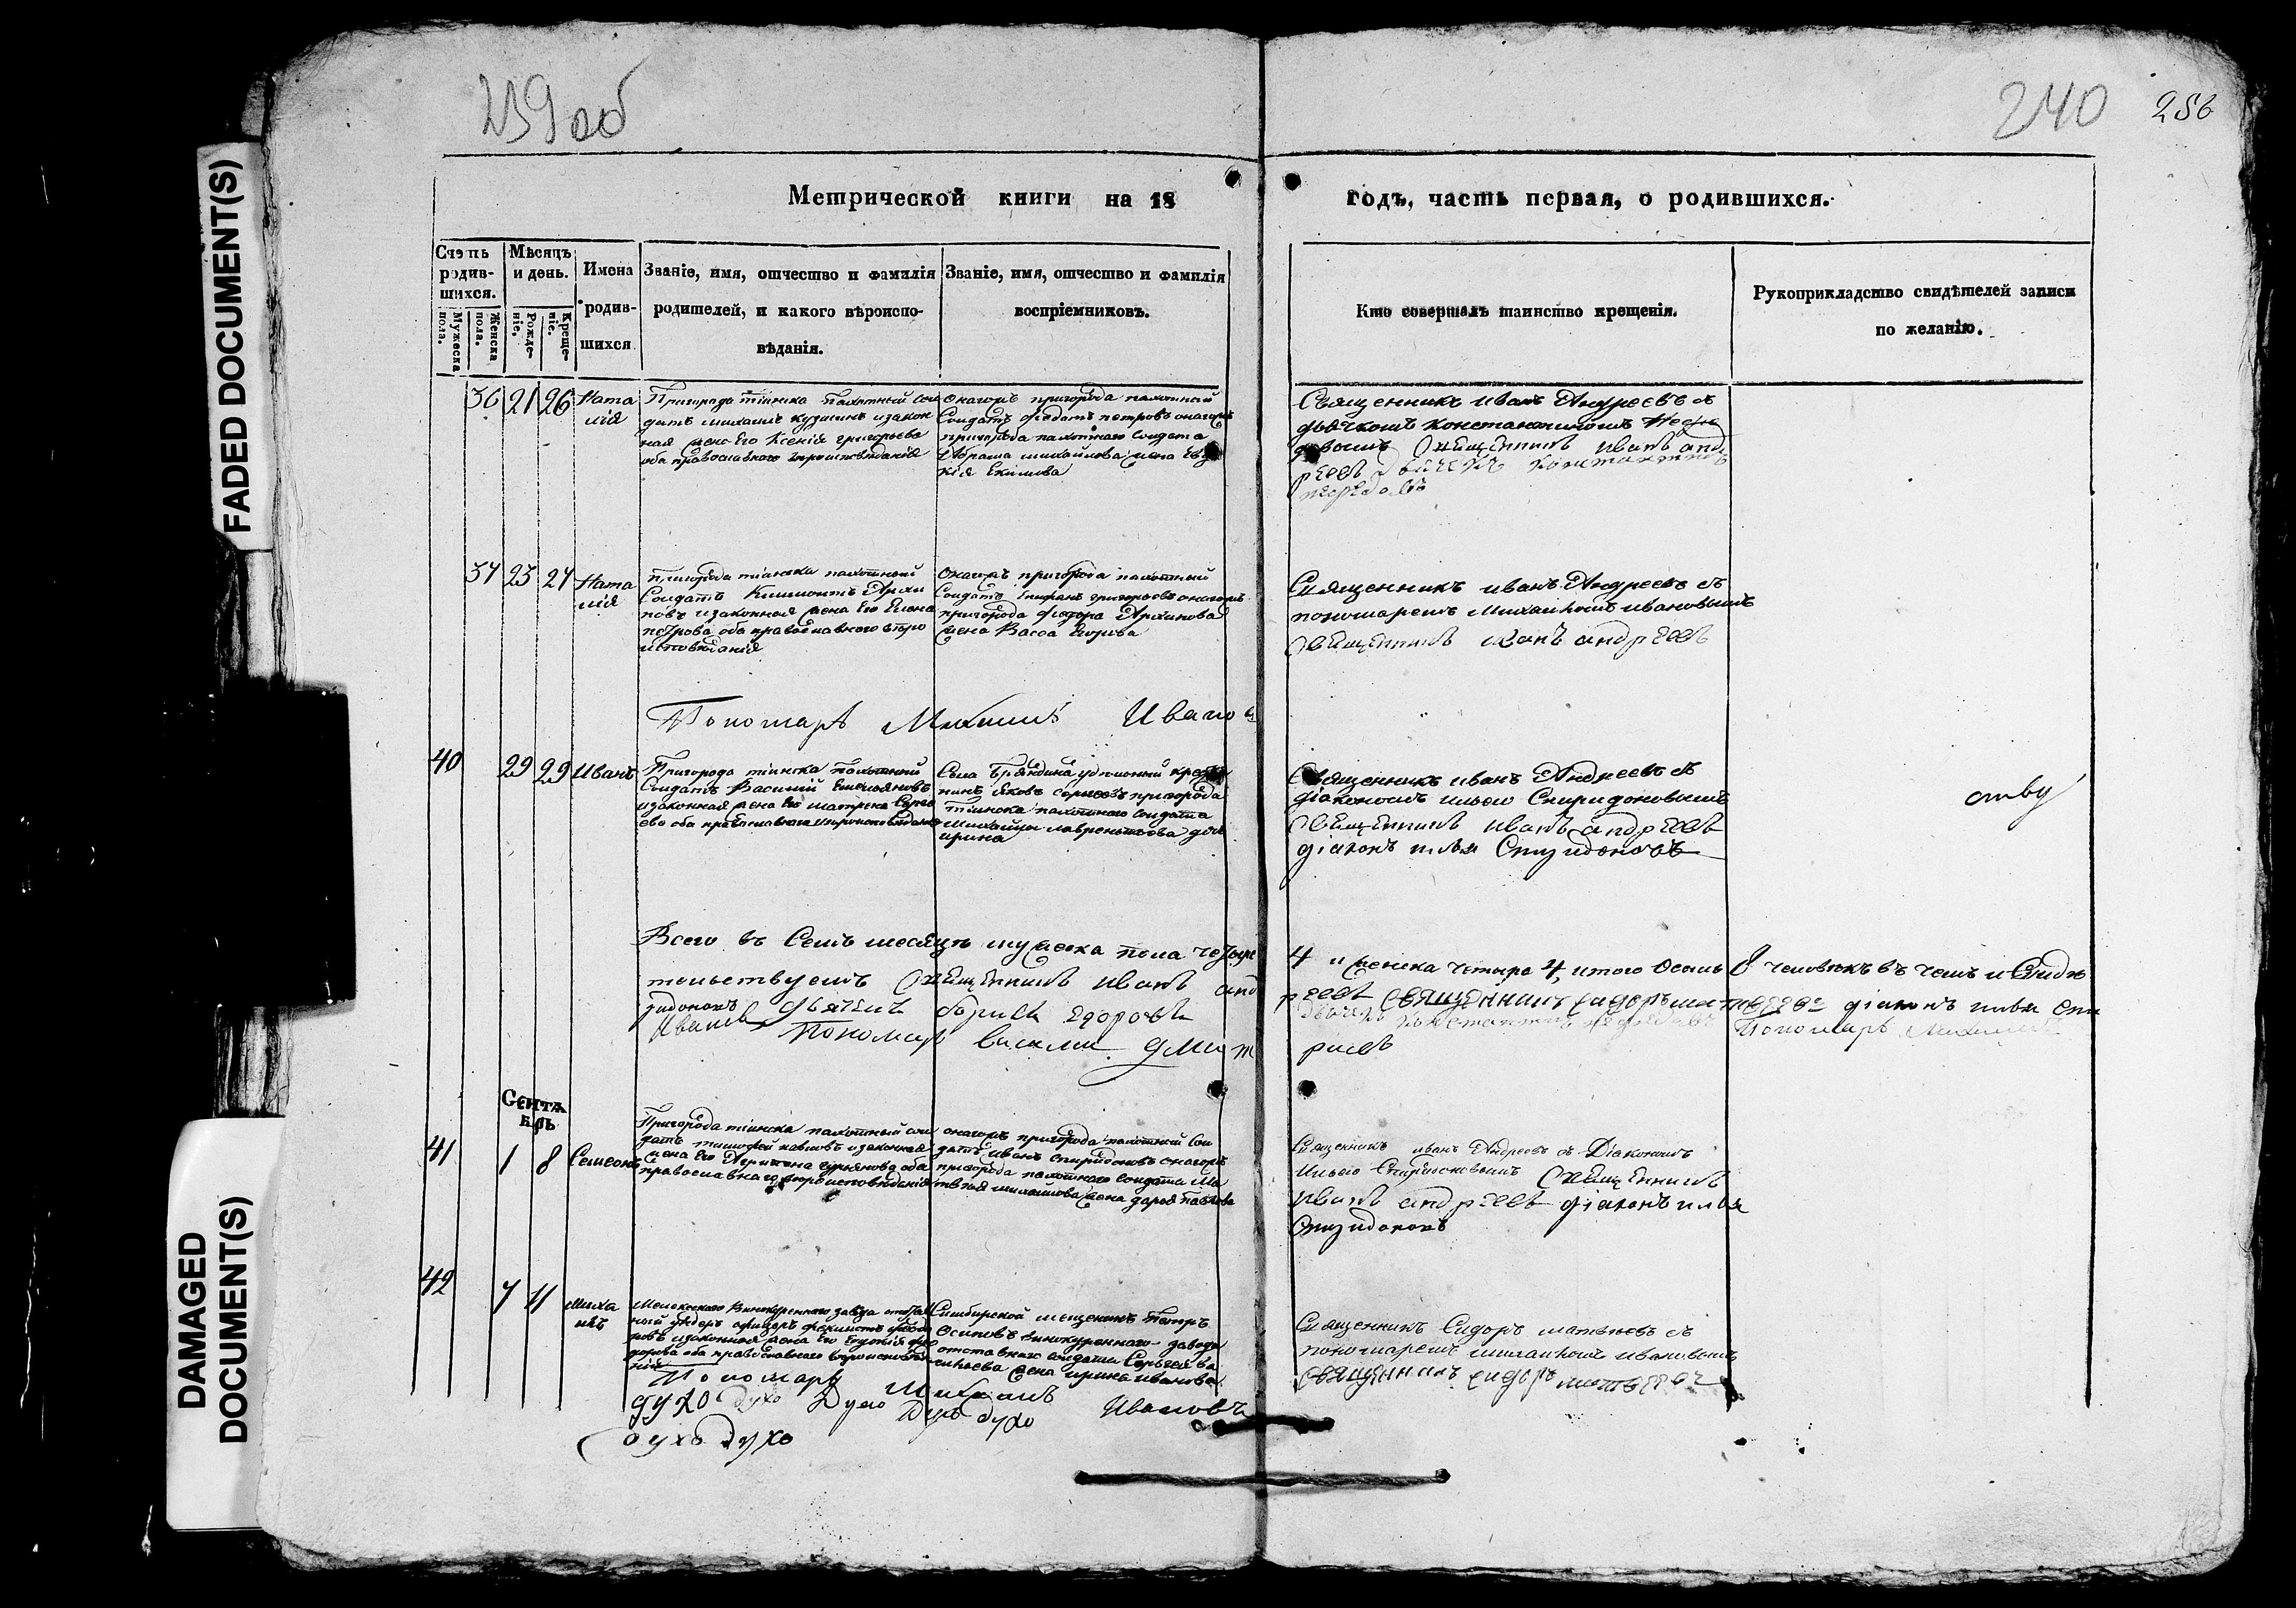 239 об
240 256
FADED DOCUMENT(S)
DAMAGED
DOCUMENT(S)
Метрической книги на 18
годъ, часть первая, о родившихся.
Счетъ
родив-
шихся.
Мужеска
пола.
Женска
пола.
Мѣсяцъ
и день.
Рожде-
ніе.
Креще-
ніе.
Имена
родив-
шихся
Званіе, имя, отчество и фамилія
родителей, и какого вѣроиспо-
вѣданія.
Званіе, имя, отчество и фамилія
воспріемниковъ.
Кто совершалъ таинство крещенія.
Рукоприкладство свидѣтелей записи
по желанію.
36 21 26 Ната
лія
Пригорода тіинска пахотный сол
датъ михаилъ кузминъ изакон
ная жена Его Ксенія григорьева
оба православного вероисповѣданія
онагожъ пригорода пахотный
Солдатъ петровъ онагожъ
пригорода пахотнаго солдата
михайлова жена Ев
кія Екимова
Священникъ иванъ Андреевъ съ
дьячкомъ константиномъ
Священникъ иванъ анд
реевъ дьячекъ константинъ
37 23 27 Ната
лія
пригорода тіинска пахотный
Солдатъ Архи
повъ изаконная жена Его Елена
петрова оба православного веро
исповѣданія
Онагожъ пригорода пахотный
Солдатъ григорьевъ онагожъ
пригорода федора Архипова
жена Васса Егорова
Священникъ иванъ Андреевъ съ
пономаремъ михаиломъ ивановымъ
Священникъ иванъ андреевъ
Пономарь Михаилъ Иванов
40 29 29 Иванъ
Пригорода тіинска пахотный
Солдатъ Василий Емельяновъ
изаконная жена Его матрена Серге
ева оба православнаго вероисповѣданія
Села Бряндина удельный крестья
нинъ яковъ сергеевъ пригорода
тіинска пахотнаго солдата
лаврентьева дочь
ирина
Священникъ иванъ Андреевъ съ
діакономъ ильею Спиридоновымъ
Священникъ иванъ андреевъ
діаконъ илья Спиридоновъ
ству
Всего въ Семъ месяцѣ мужеска пола четыре
4 и женска четыре 4, итого восемь 8 человѣкъ въ чемъ и Свидѣ
тельствуемъ Священникъ иванъ анд
реевъ Священникъ сидоръ матвеевъ діаконъ илья Спи
ридоновъ дьячекъ
дьячекъ константинъ Пономарь Михаилъ
Ивановъ Пономарь василий дмит
риевъ
Сентя
брь
41 1 8 Семеонъ
Пригорода тіинска пахотный сол
датъ тимофей павловъ изаконная
жена Его оба
православнаго вероисповѣданія
онагожъ пригорода пахотный Сол
датъ Иванъ спиридоновъ онагожъ
пригорода пахотнаго солдата Ма
твея михайлова жена дарья Павлова
Священникъ иванъ Андреевъ съ Діакономъ
Ильею Спиридоновымъ Священникъ
иванъ андреевъ діаконъ илья
Спиридоновъ
42 7 11 Миха
илъ
Мелекескаго Винокуреннаго завода отстав
ный ундеръ офицеръ
новъ изаконная жена Его
оба православнаго вероисповѣда
нія
Симбирской мещенинъ Петръ
Осиповъ винокуреннаго завода
отставнаго солдата Сергея Ва
сильева жена ирина иванова
Священникъ Сидоръ матвѣевъ съ
пономаремъ михаиломъ ивановымъ
Священникъ сидоръ матвеевъ
Пономарь Михаилъ Ивановъ
духо духо Духо Духо духо
духо духо